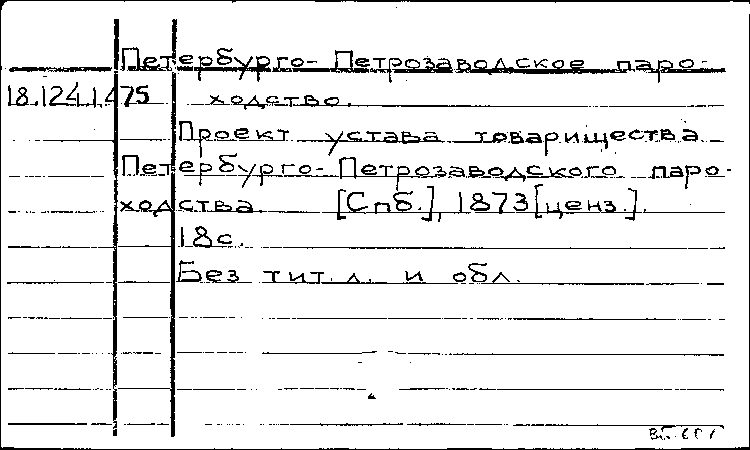 Петербурго-Петрозаводское паро-
18.124.1.475 ходство.
Проект устава товарищества
Петербурго-Петрозаводского паро-
ходства. [Спб.], 1873 [ценз.].
18с.
Без тит. л. и обл.